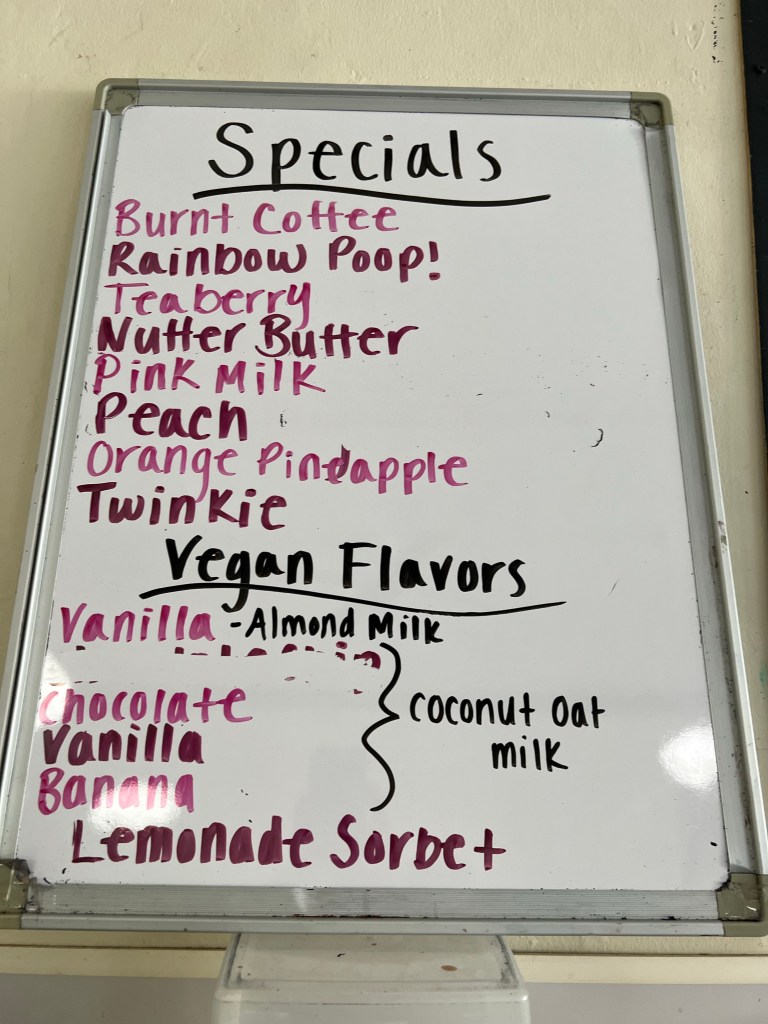 Specials
Burnt Coffee
Rainbow Poop!
Teaberry
Nutter Butter
Pink Milk
Peach
Orange Pineapple
Twinkie
Vegan Flavors
Vanilla - Almond Milk
Chocolate
Vanilla
Banana
coconut oat
milk
Lemonade Sorbet